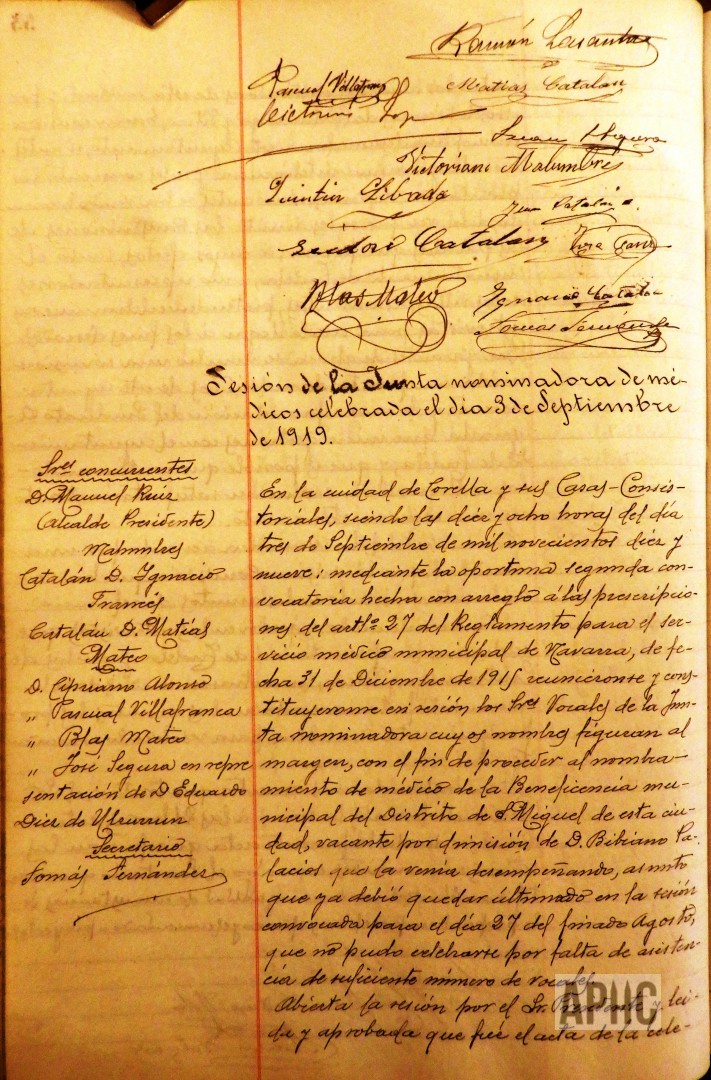 Ramón
Pascual Villafranca
Matías Catalán
Juan Segura
Victoriano Malumbres
Quintín
Juan Catalán
Isidoro Catalán
José
Blas Mateo
Ignacio Catalán
Tomás Fernández
Sesión de la Junta nominadora de mé-
dicos celebrada el día 3 de Septiembre
de 1919.
Sres concurrentes
D. Manuel Ruiz
(Alcalde Presidente)
Malumbres
Catalán D. Ignacio
Francés
Catalán D. Matías
Mateo
D. Cipriano Alonso
" Pascual Villafranca
" Blas Mateo
" José Segura en repre
sentación de D Eduardo
Diez de Ulzurrun
Secretario
Tomás Fernández
En la ciudad de Corella y sus Casas-Consis-
toriales, siendo las diez y ocho horas del día
tres de Septiembre de mil novecientos diez y
nueve; mediante la oportuna segunda con-
vocatoria hecha con arreglo á las prescripcio-
nes del artlo 27 del Reglamento para el ser-
vicio médico municipal de Navarra, de fe-
cha 31 de Diciembre de 1915 reuniéronse y cons-
tituyeronse en sesión los Sres Vocales de la Jun-
ta nominadora cuyos nombres figuran al
margen, con el fin de proceder al nombra-
miento de médico de la Beneficencia mu-
nicipal del Distrito de S. Miguel de esta ciu-
dad, vacante por dimisión de D. Bibiano Pa-
lacios que la venía desempeñando, asunto
que ya debió quedar últimado en la sesión
convocada para el día 27 del finado Agosto,
que nó pudo celebrarse por falta de asisten-
cia de suficiente número de vocales.
Abierta la sesión por el Sr. Presidente y leí-
da y aprobada que fué el acta de la cele-
APHC